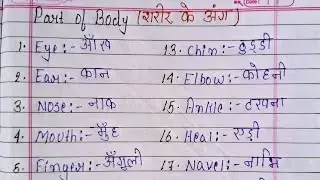 Part of Body (शरीर के अंग)
1. Eye:- आँख
2. Ear:- कान
3. Nose:- नाक
4. Mouth:- मुँह
5. Finger:- अँगुली
13. Chin:- ठुड्डी
14. Elbow:- कोहनी
15. Ankle:- टखना
16. Heal:- एड़ी
17. Navel:- नाभि